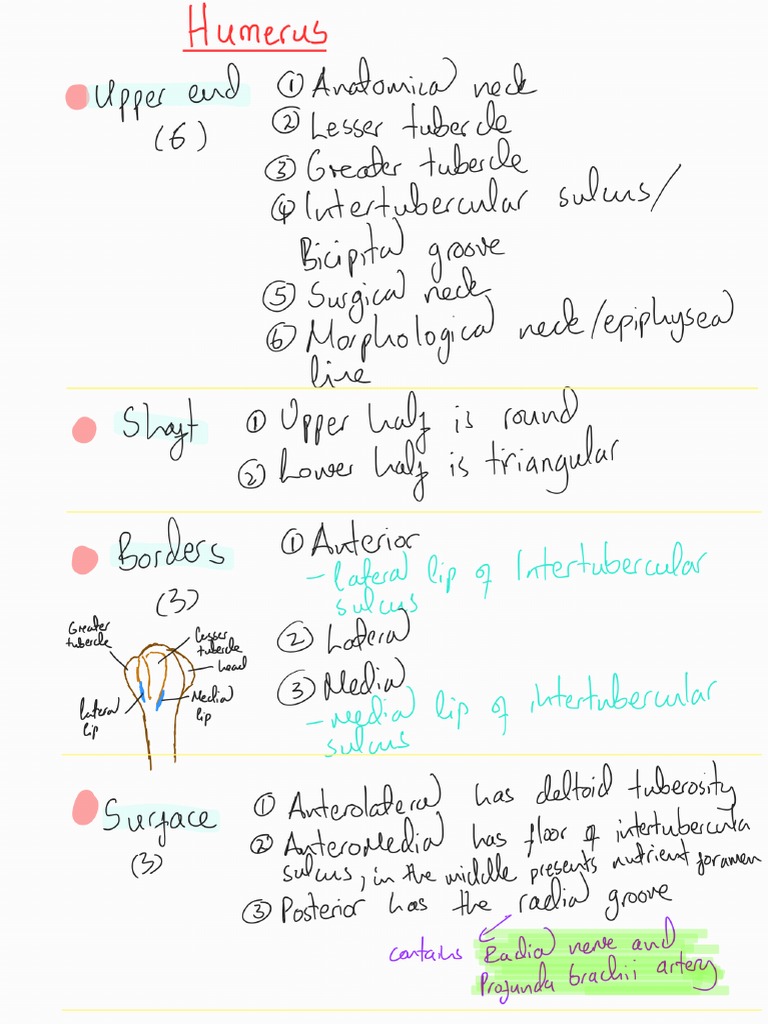 Humerus
Upper end
(6)
① Anatomical neck
② Lesser tubercle
③ Greater tubercle
④ Intertubercular sulcus/
Bicipital groove
⑤ Surgical neck
⑥ Morphological neck/epiphyseal
line
Shaft
① Upper half is round
② Lower half is triangular
Borders
(3)
① Anterior
- lateral lip of Intertubercular
sulcus
② Lateral
③ Medial
- medial lip of intertubercular
sulcus
Greater
tubercle
Lesser
tubercle
head
lateral
lip
Medial
lip
Surface
(3)
① Anterolateral has deltoid tuberosity
② Anteromedial has floor of intertubercula
sulcus, in the middle presents nutrient foramen
③ Posterior has the radial groove
contains Radial nerve and
Profunda brachii artery